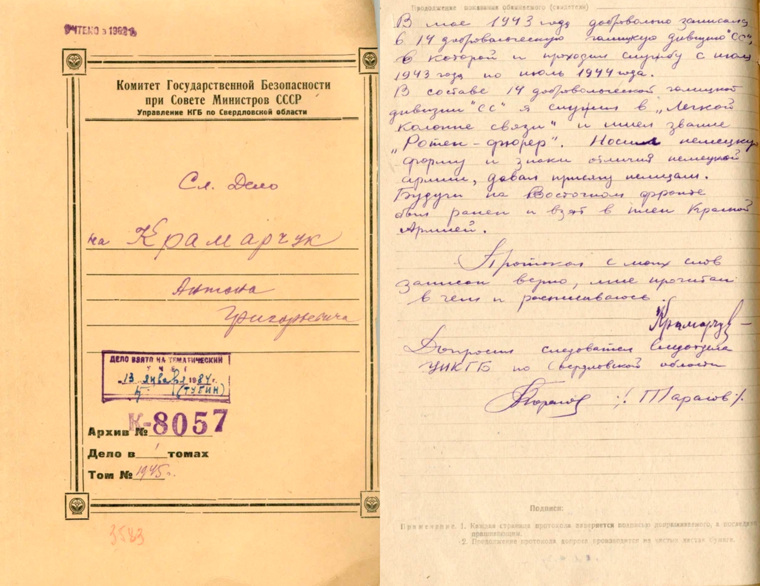 УЧТЕНО в 1962 г.
Комитет Государственной Безопасности
при Совете Министров СССР
Управление КГБ по Свердловской области
Сл. Дело
на Крамарчук
Антона
Григорьевича
ДЕЛО ВЗЯТО НА ТЕМАТИЧЕСКИЙ
УЧЕТ
13 января 1984 г.
(ТУБИН)
Архив № К-8057
Дело в 1 томах
Том № 1945 г.
3583
Продолжение показания обвиняемого (свидетеля)
В мае 1943 году добровольно записался
в 14 добровольческую галицкую дивизию "СС",
в которой и проходил службу с июля
1943 года по июль 1944 года.
В составе 14 добровольческой галицкой
дивизии "СС" я служил в "Легкой
колонне связи" и имел звание
"Ротен-фюрер". Носил немецкую
форму и знаки отличия немецкой
армии, давал присягу немцам.
Будучи на Восточном фронте
был ранен и взят в плен Красной
Армией.
Протокол с моих слов
записан верно, мне прочитан
в чем и расписываюсь
Крамарчук
Допросил следователь
УНКГБ по Свердловской области
/Тарасов/.
Подписи:
Примечание: 1. Каждая страница протокола заверяется подписью допрашиваемого, а последняя
2. Продолжение протокола допроса производится на чистых листах бумаги.